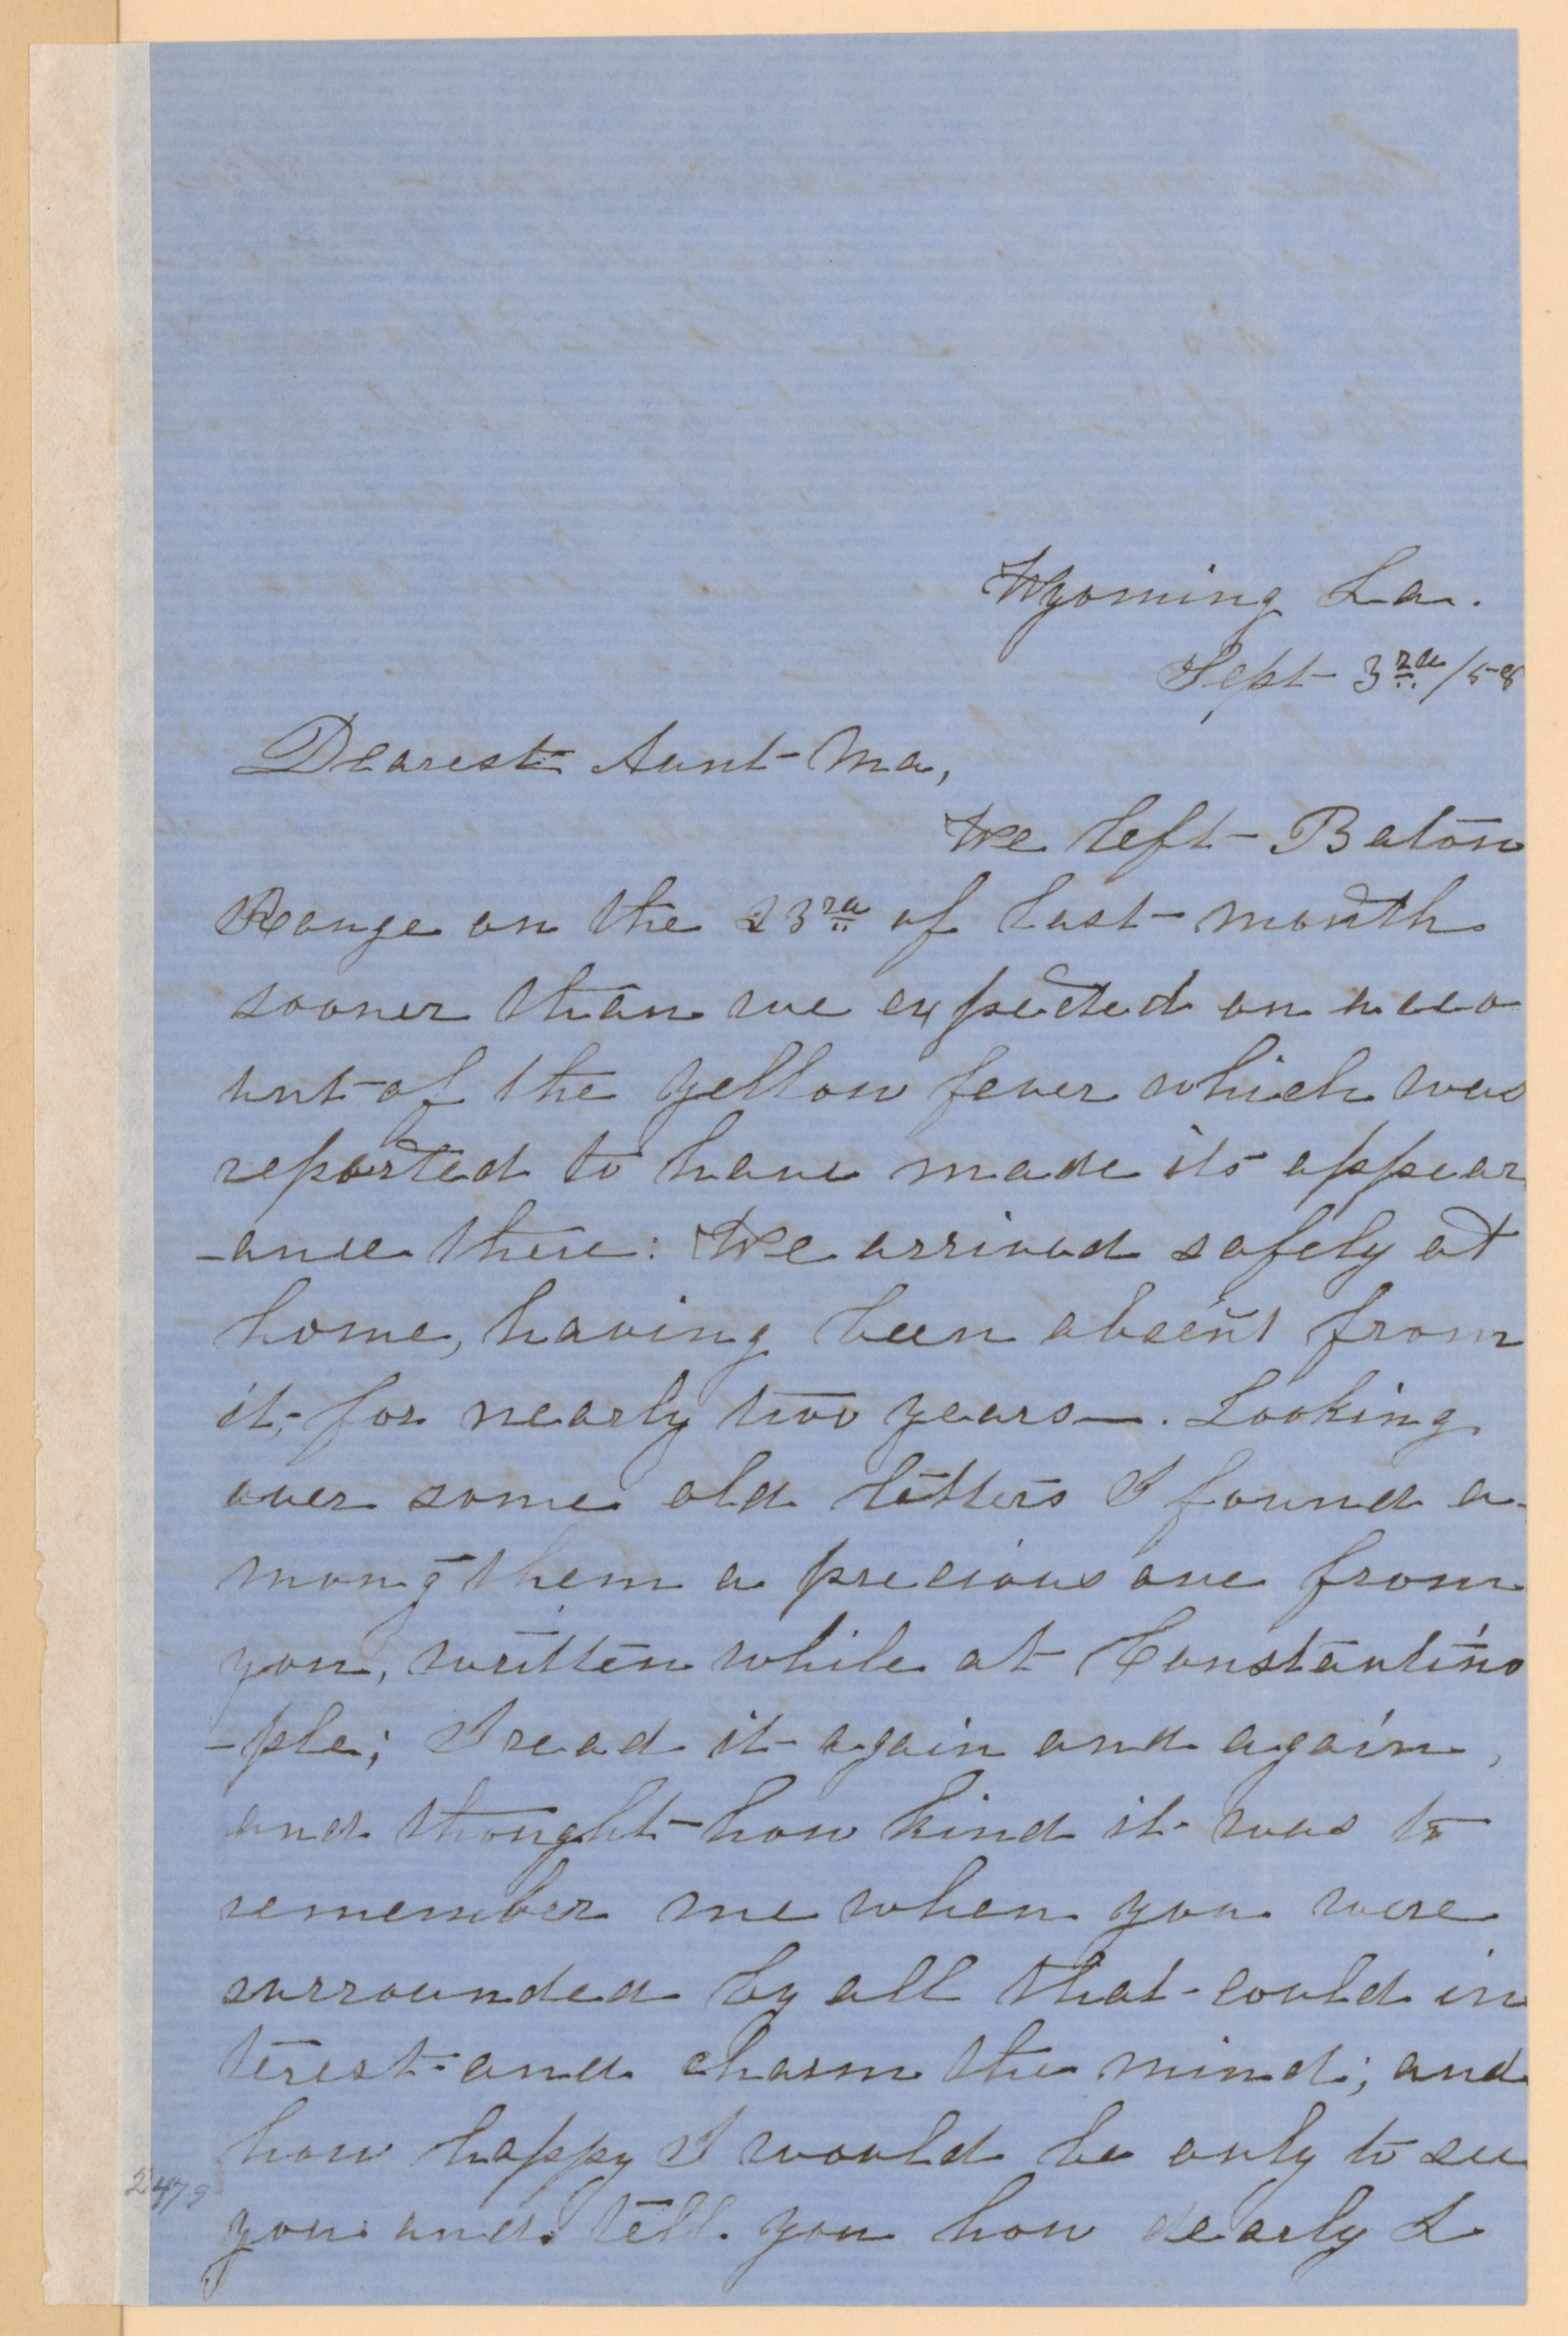 Wyoming La.
Sept 3rd /58
Dearest Aunt Ma,
We left Baton
Rouge on the 23rd of last month
sooner than we expected on acco
unt of the yellow fever which was
reported to have made its appear
-ance there: We arrived safely at
home, having been absent from
it, for nearly two years—. Looking
over some old letters I found a-
mong them a precious one from
you, written while at Constantino
-ple; I read it again and again,
and thought how kind it was to
remember me when you were
surrounded by all that could in
terest and charm the mind; and
how happy I would be only to see
you and tell you how dearly I
2479